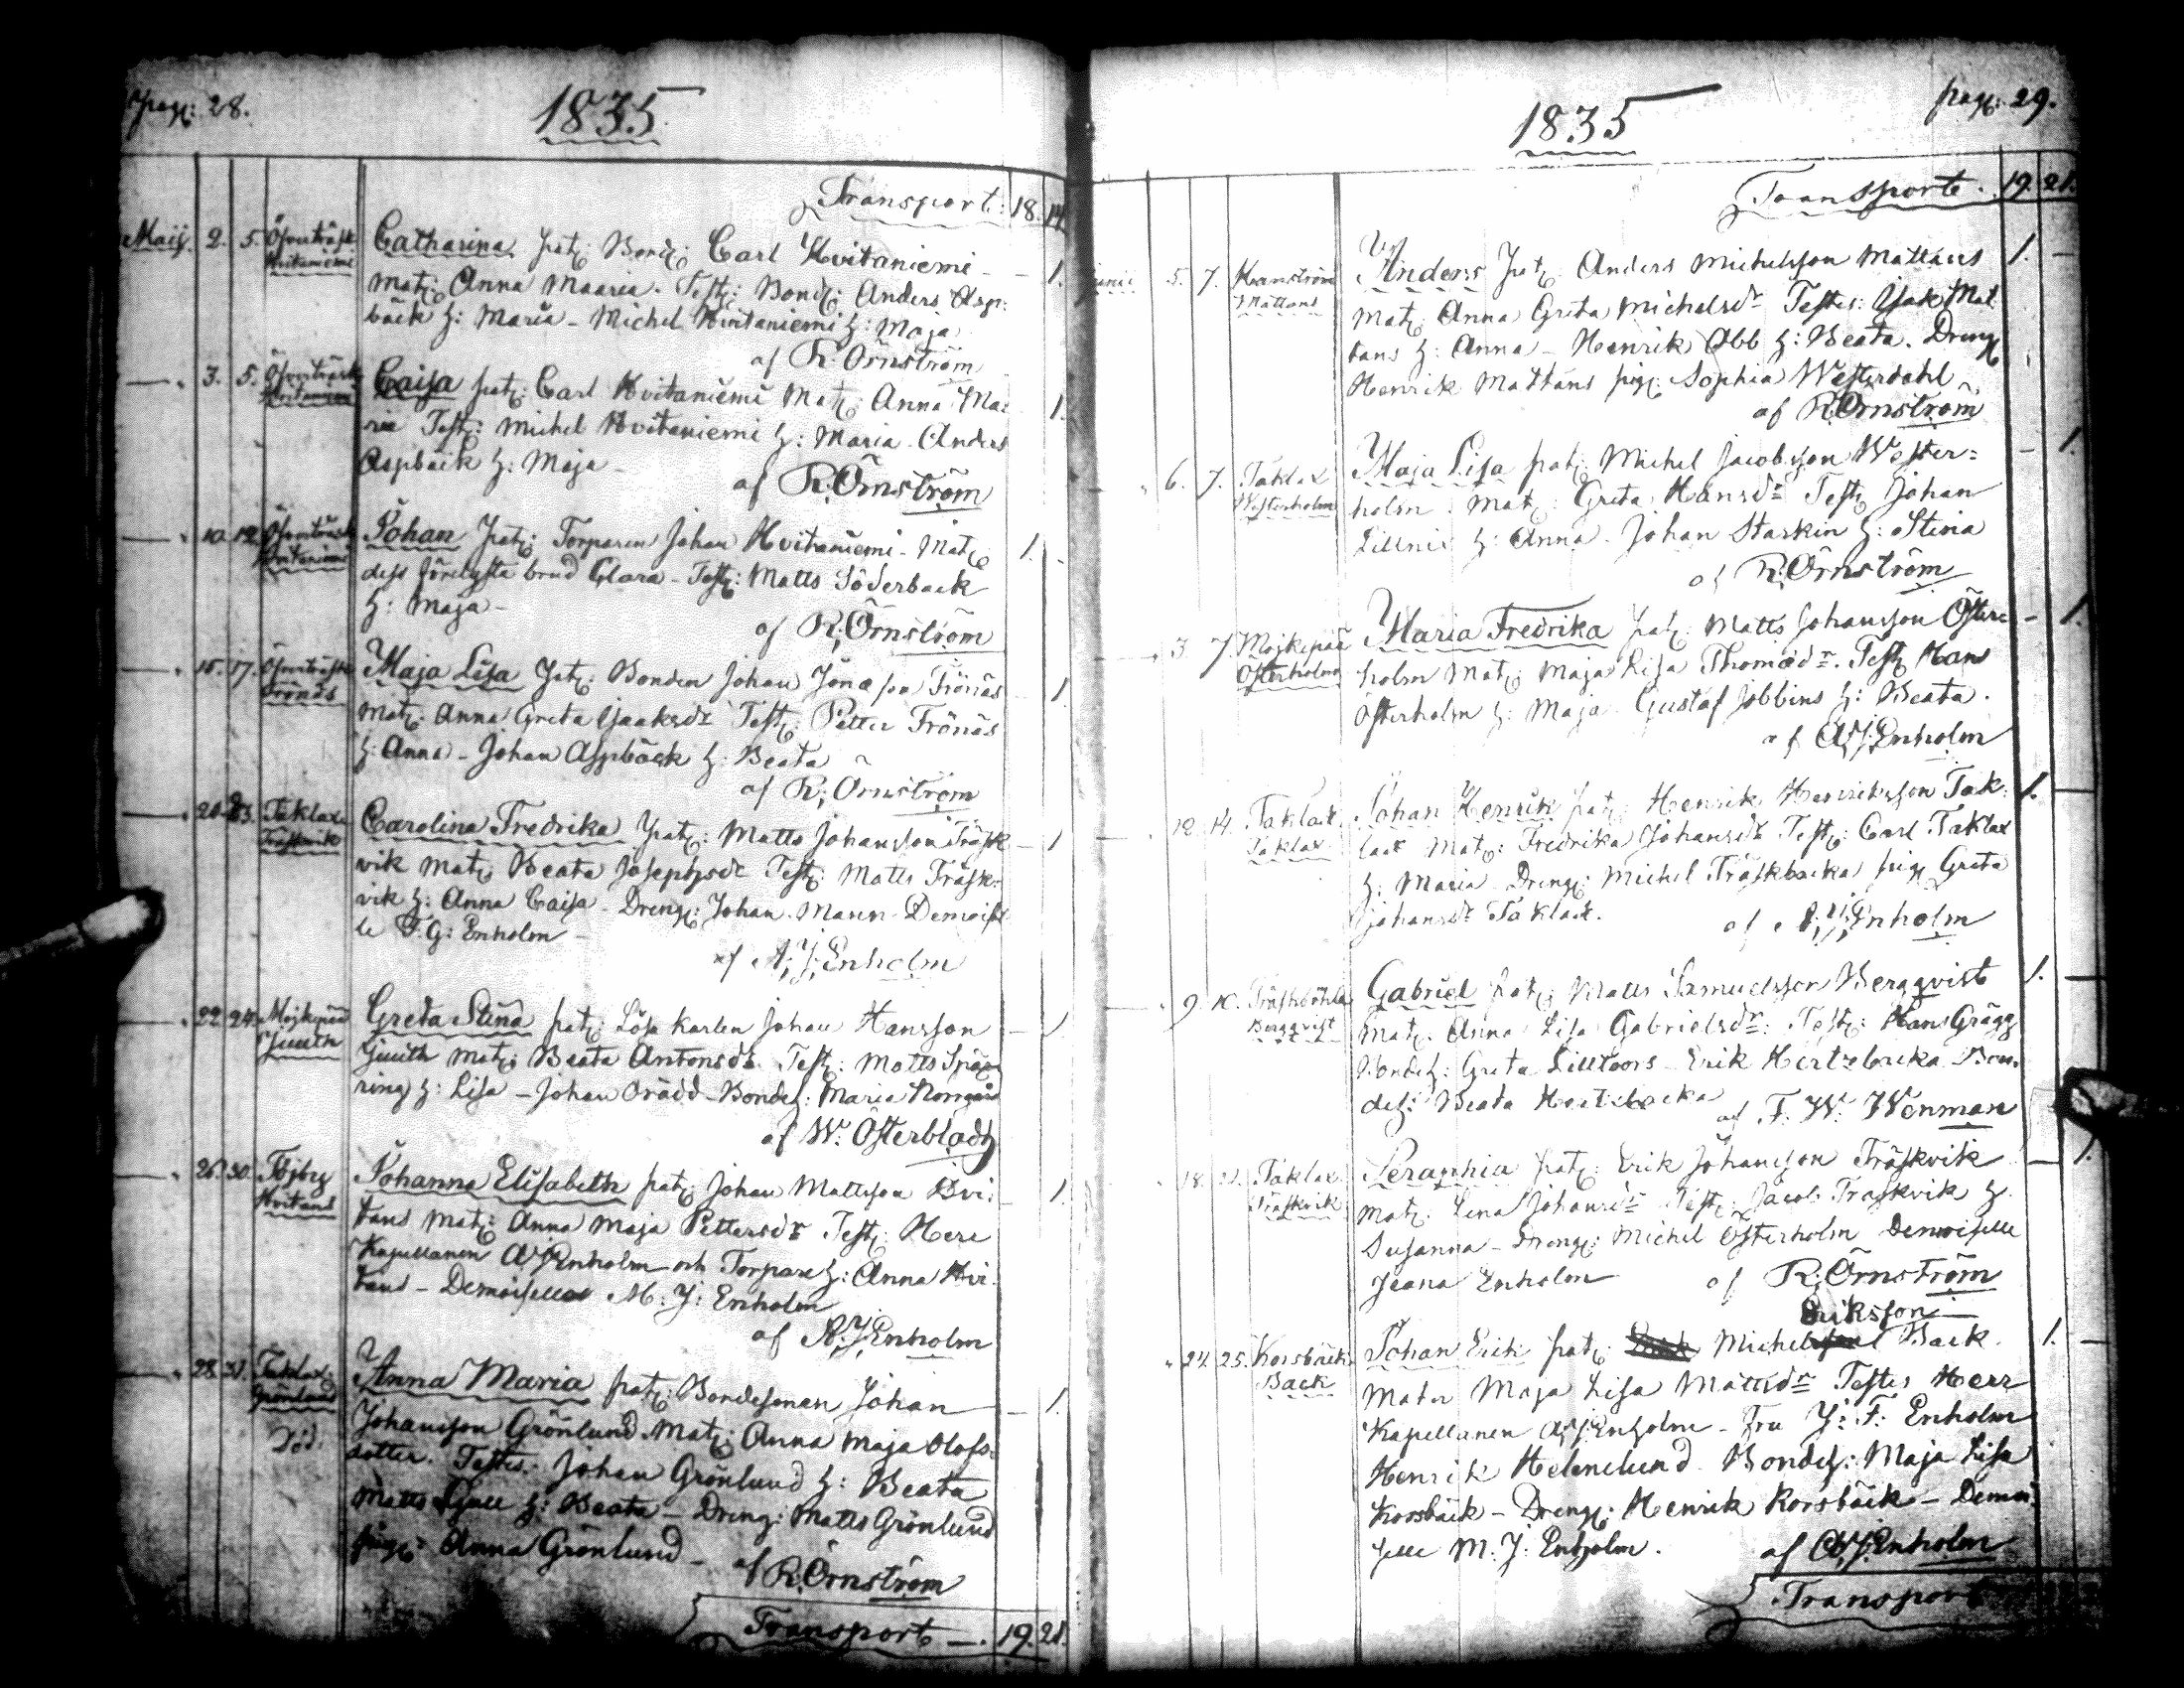 pag: 28.
1835
Transport: 18. 14.
Maij. 2. 5. Öfverträsk Catharina pat: Bond: Carl Hvitaniemi - 1.
Hvitaniemi mat: Anna Maaria. Test: Bond: Anders Asp:
bäck h: Maria - Michel Hvitaniemi h: Maja
af R: Örnström
3. 5. Öfverträsk Caisa pat: Carl Hvitaniemi Mat: Anna Ma: 1.
Hvitaniemi ria Test: Michel Hvitaniemi h: Maria - Anders
Aspbäck h: Maja -
af R: Örnström
10. 12. Öfverträsk Johan pat: Torparen Johan Hvitaniemi - Mat: 1. -
Hvitaniemi dess förelysta brud Clara - Test: Matts Söderback
h: Maja -
af R: Örnström
15. 17. Öfverträsk Maja Lisa pat: Bonden Johan Jönasson Frönäs 1
Frönäs mat: Anna Greta Isaaksdr Test: Petter Frönäs
h: Anna - Johan Aspbäck h: Beata
af R: Örnström
20. 23. Taklax Carolina Fredrika pat: Matts Johansson Träsk - 1
Träskvik vik mat: Beata Josephsdr Test: Matts Träsk:
vik h: Anna Caisa - Dreng: Johan Mann - Demoisel
le F. G: Enholm -
af A: J: Enholm
22. 24. Mojkepää Greta Stina pat: Löse karlen Johan Hansson - 1
Smith Smith mat: Beata Antonsdr. Test: Matts Spän
ring h: Lisa - Johan Orädd - Bondeh: Maria Norrgård
af W: Österbladh
26. 30. Töjby Johanna Elisabeth pat: Johan Mattsson Hvi: - 1.
Hvitans tans mat: Anna Maja Pettersdr Test: Herr
Kapellanen A: J: Enholm och Torpareh: Anna Hvi:
tans - Demoiselle M: J: Enholm
af A: J: Enholm
28. 31. Taklax Anna Maria pat: Bondesonen Johan - 1.
Grönlund Johansson Grönlund. Mat: Anna Maja Olofs:
Död. dotter. Testes: Johan Grönlund h: Beata
Matts h: Beata - Dreng: Matts Grönlund
pig: Anna Grönlund -
af R: Örnström
Transport - 19. 21.
pag: 29.
1835
Transport. 19. 21.
Junii 5. 7. Kornström Anders pat: Anders Michelsson Mattans 1. -
Mattans mat: Anna Greta Michelsdr Testes: Isak Mat
tans h: Anna - Henrik Abb h: Beata. Dreng
Henrik Mattans pig: Sophia Westerdahl
af R: Örnström
6. 7. Taklax Maja Lisa pat: Michel Jacobsson Wester: - 1.
Westerholm holm. Mat: Greta Hansdr Test: Johan
Lillnis h: Anna - Johan Starkin h: Stina
af R: Örnström
3. 7. Mojkepää Maria Fredrika pat: Matts Johansson Öster: - 1.
Österholm holm Mat: Maja Lisa Thomasdr. Test: Hans
Österholm h: Maja - Gustaf Jobbins h: Beata.
af A: J: Enholm
12. 14. Taklax Johan Henrik pat: Henrik Henriksson Tak: 1. -
Taklax lax Mat: Fredrika Johansdr Test: Carl Taklax
h: Maria - Dreng: Michel Träskbacka pig: Greta
Johansdr Taklax.
af A: J: Enholm
9. 10. Träskböhle Gabriel pat: Matts Samuelsson Bergqvist 1. -
Bergqvist mat: Anna Lisa Gabrielsdr: Test: Hans Grägg
Bondeh: Greta Lilltoors - Erik Hertzbacka Bon:
deh: Beata Hertzbacka
af F: W: Wenman
18. 21. Taklax Seraphia pat: Erik Johansson Träskvik - 1.
Träskvik mat: Lena Johansdr Test: Jacob Träskvik h:
Susanna - Dreng: Michel Österholm Demoiselle
Jeana Enholm af R: Örnström
Eriksson
24. 25. Korsbäck Johan Erik pat: Michel Back. 1. -
Back Mater Maja Lisa Mattsdr Testes Herr
Kapellanen A: J: Enholm - Fru J: F: Enholm
Henrik Helenelund Bondeh: Maja Lisa
Korsbäck - Dreng: Henrik Korsbäck - Demoi:
selle M: J: Enholm.
af A: J: Enholm
Transport